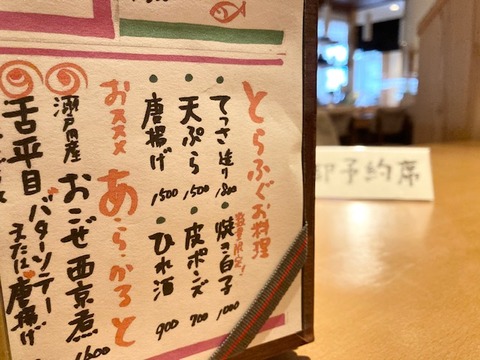 とらふぐお料理
数量限定!
・てっさ造り 1800
・焼白子 1000
・天ぷら 1500
・皮ポンズ 700
・唐揚げ 1500
・ひれ酒 900
おススメ あ・ら・かると
瀬戸内産 おこぜ西京煮 1600
舌平目 バターソテー
または唐揚げ
御予約席